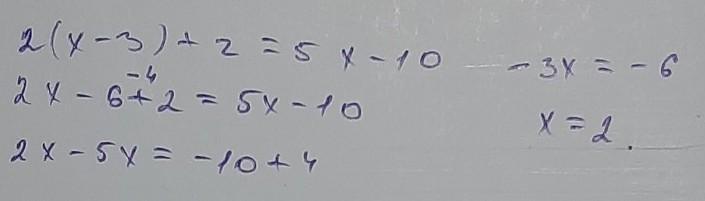 2(x-3)+2=5x-10
-4
2x-6+2=5x-10
2x-5x=-10+4
-3x=-6
x=2.